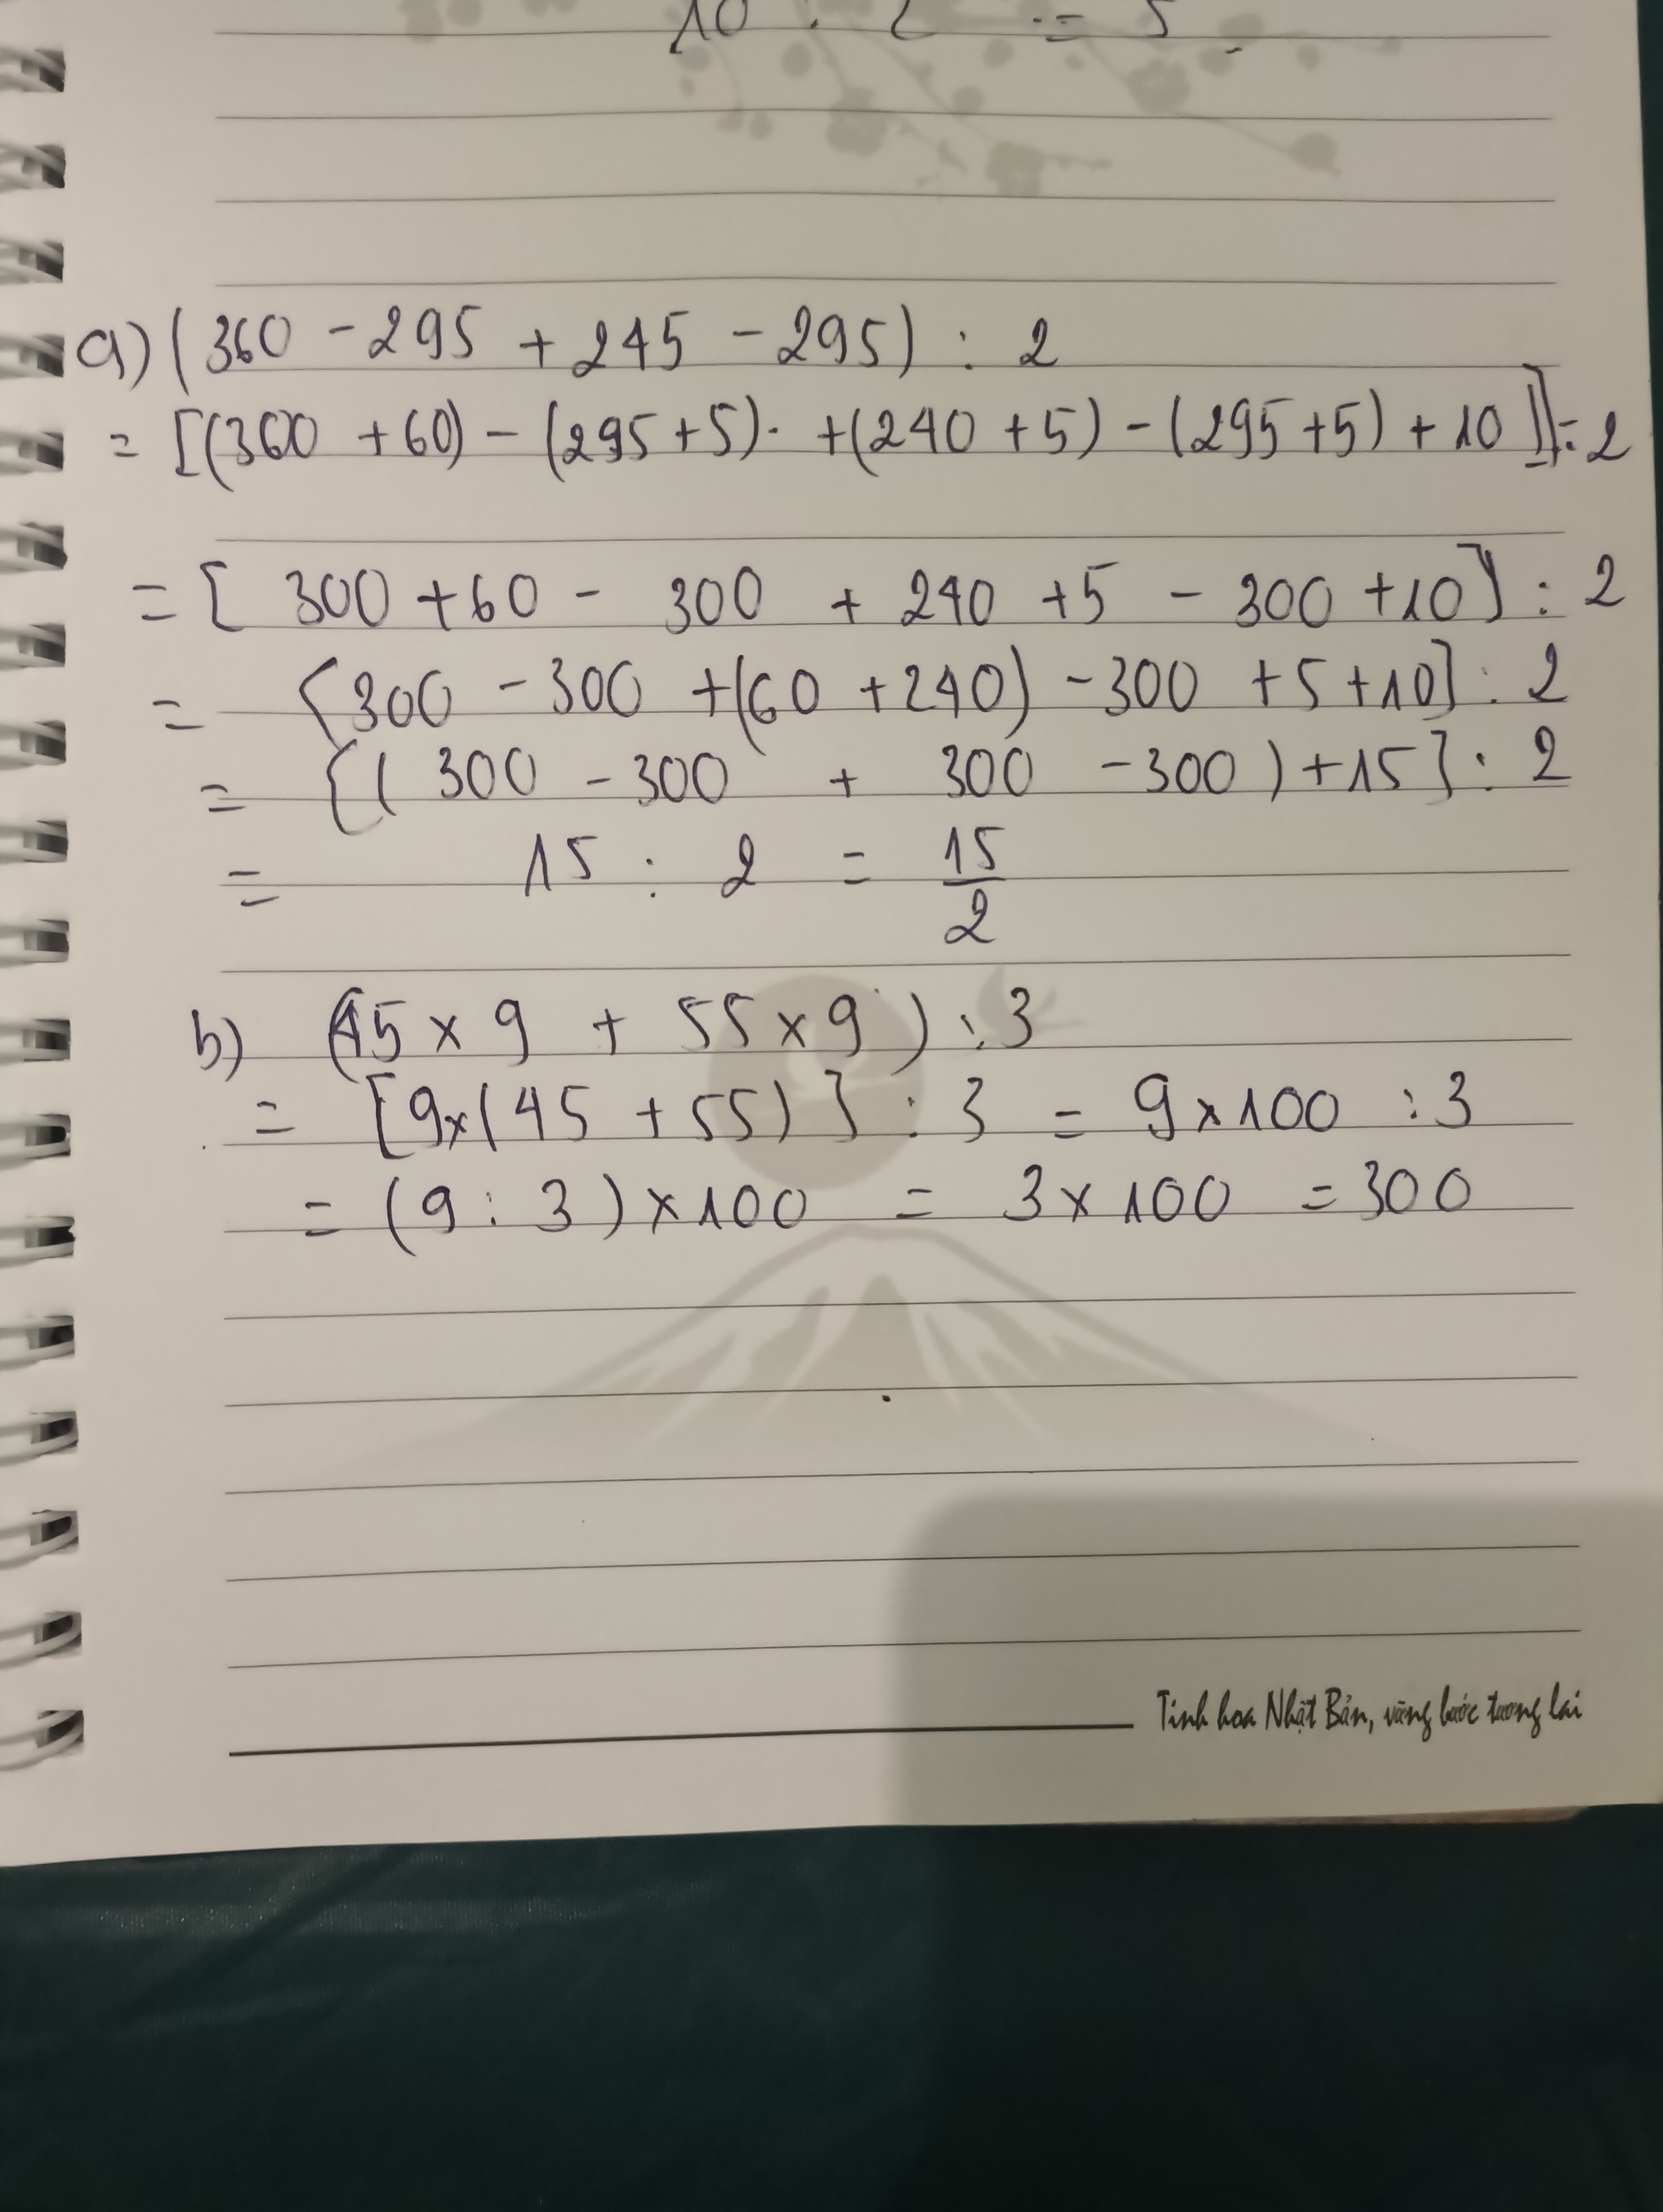 10 : 2 = 5
a) (360 - 295 + 245 - 295) : 2
= [(300 + 60) - (295 + 5) + (240 + 5) - (295 + 5) + 10] : 2
= [ 300 + 60 - 300 + 240 + 5 - 300 + 10] : 2
= [300 - 300 + (60 + 240) - 300 + 5 + 10] : 2
= {( 300 - 300 + 300 - 300 ) + 15} : 2
= 15 : 2 = 15/2
b) (45 x 9 + 55 x 9 ) : 3
= [9x(45 + 55)] : 3 = 9 x 100 : 3
= (9 : 3) x 100 = 3 x 100 = 300
Tinh hoa Nhật Bản, vững bước tương lai